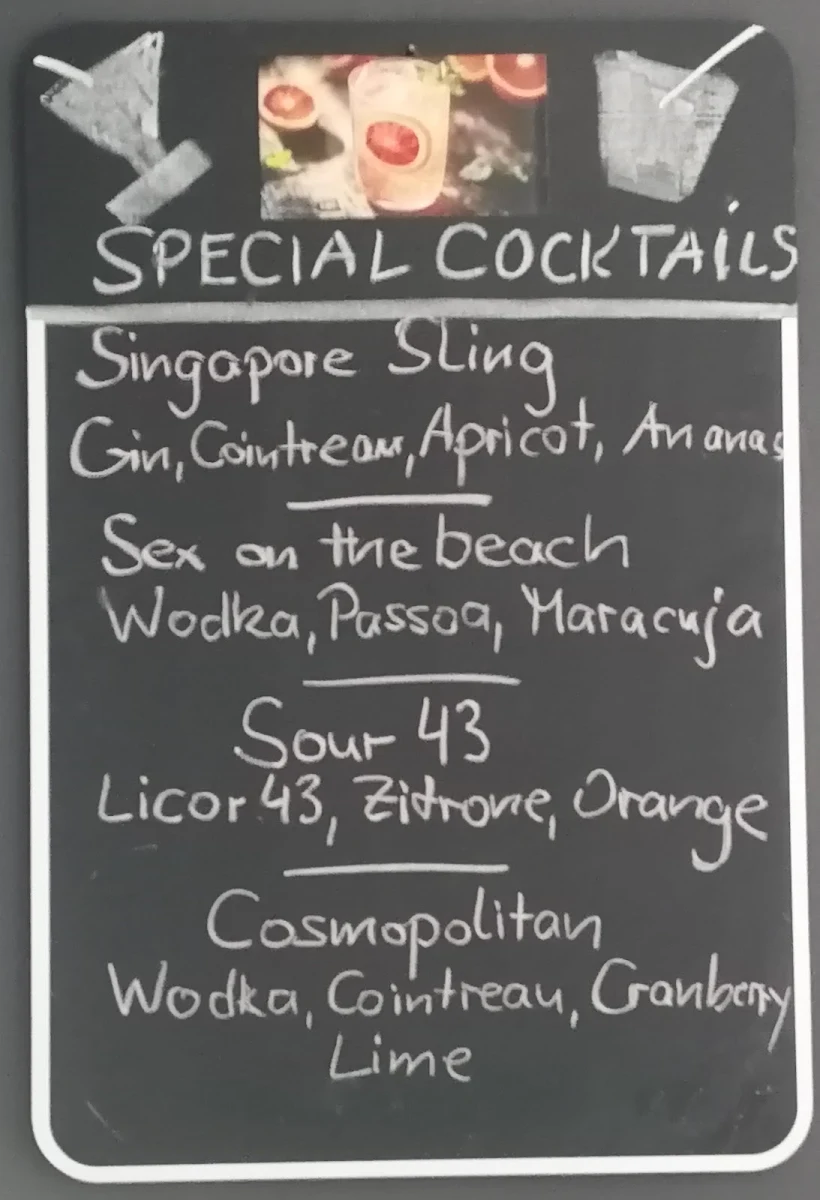 SPECIAL COCKTAILS
Singapore Sling
Gin, Cointreau, Apricot, Ananas
Sex on the beach
Wodka, Passoa, Maracuja
Sour 43
Licor 43, Zitrone, Orange
Cosmopolitan
Wodka, Cointreau, Cranberry
Lime